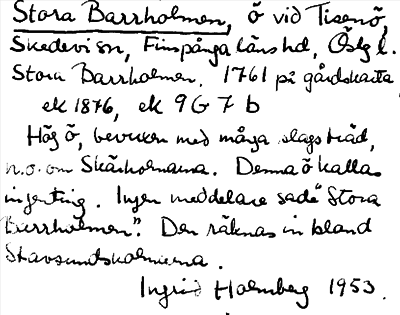 Stora Barrholmen, ö vid Tisenö,
Skedevi sn, Finspånga läns hd, Östg l.
Stora Barrholmen. 1761 på gårdskarta
ek 1876, ek 9 G 7 b
Hög ö, bevuxen med många slags träd,
n.o. om Skärholmarna. Denna ö kallas
ingenting. Ingen meddelare sade "Stora
Barrholmen". Den räknas in bland
Stavsundsholmarna.
Ingrid Holmberg 1953.